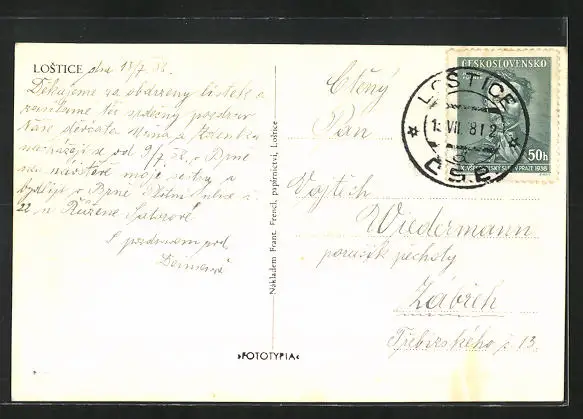 LOŠTICE dne 13/7 38.
Děkujeme za obdržený lístek a
zasíláme též srdečný pozdrav
Naše děvčata a Zdenka
nacházejí se od 9/7 38 v Brně
na návštěvě moje sestry a
bydlí v Brně ulice č.
22 u Růžene
S pozdravem pod
Nákladem Franz. Frencl, papírnictví, Loštice
»FOTOTYPIA«
Ctěný
Pan
Vojtěch
Wiedermann
poručík pěchoty
Zábřeh
Třebízského č. 13.
ČESKOSLOVENSKO
50h
X. VŠESOKOLSKÝ SLET V PRAZE 1938
LOŠTICE
13. VII. 38 12
ČSR